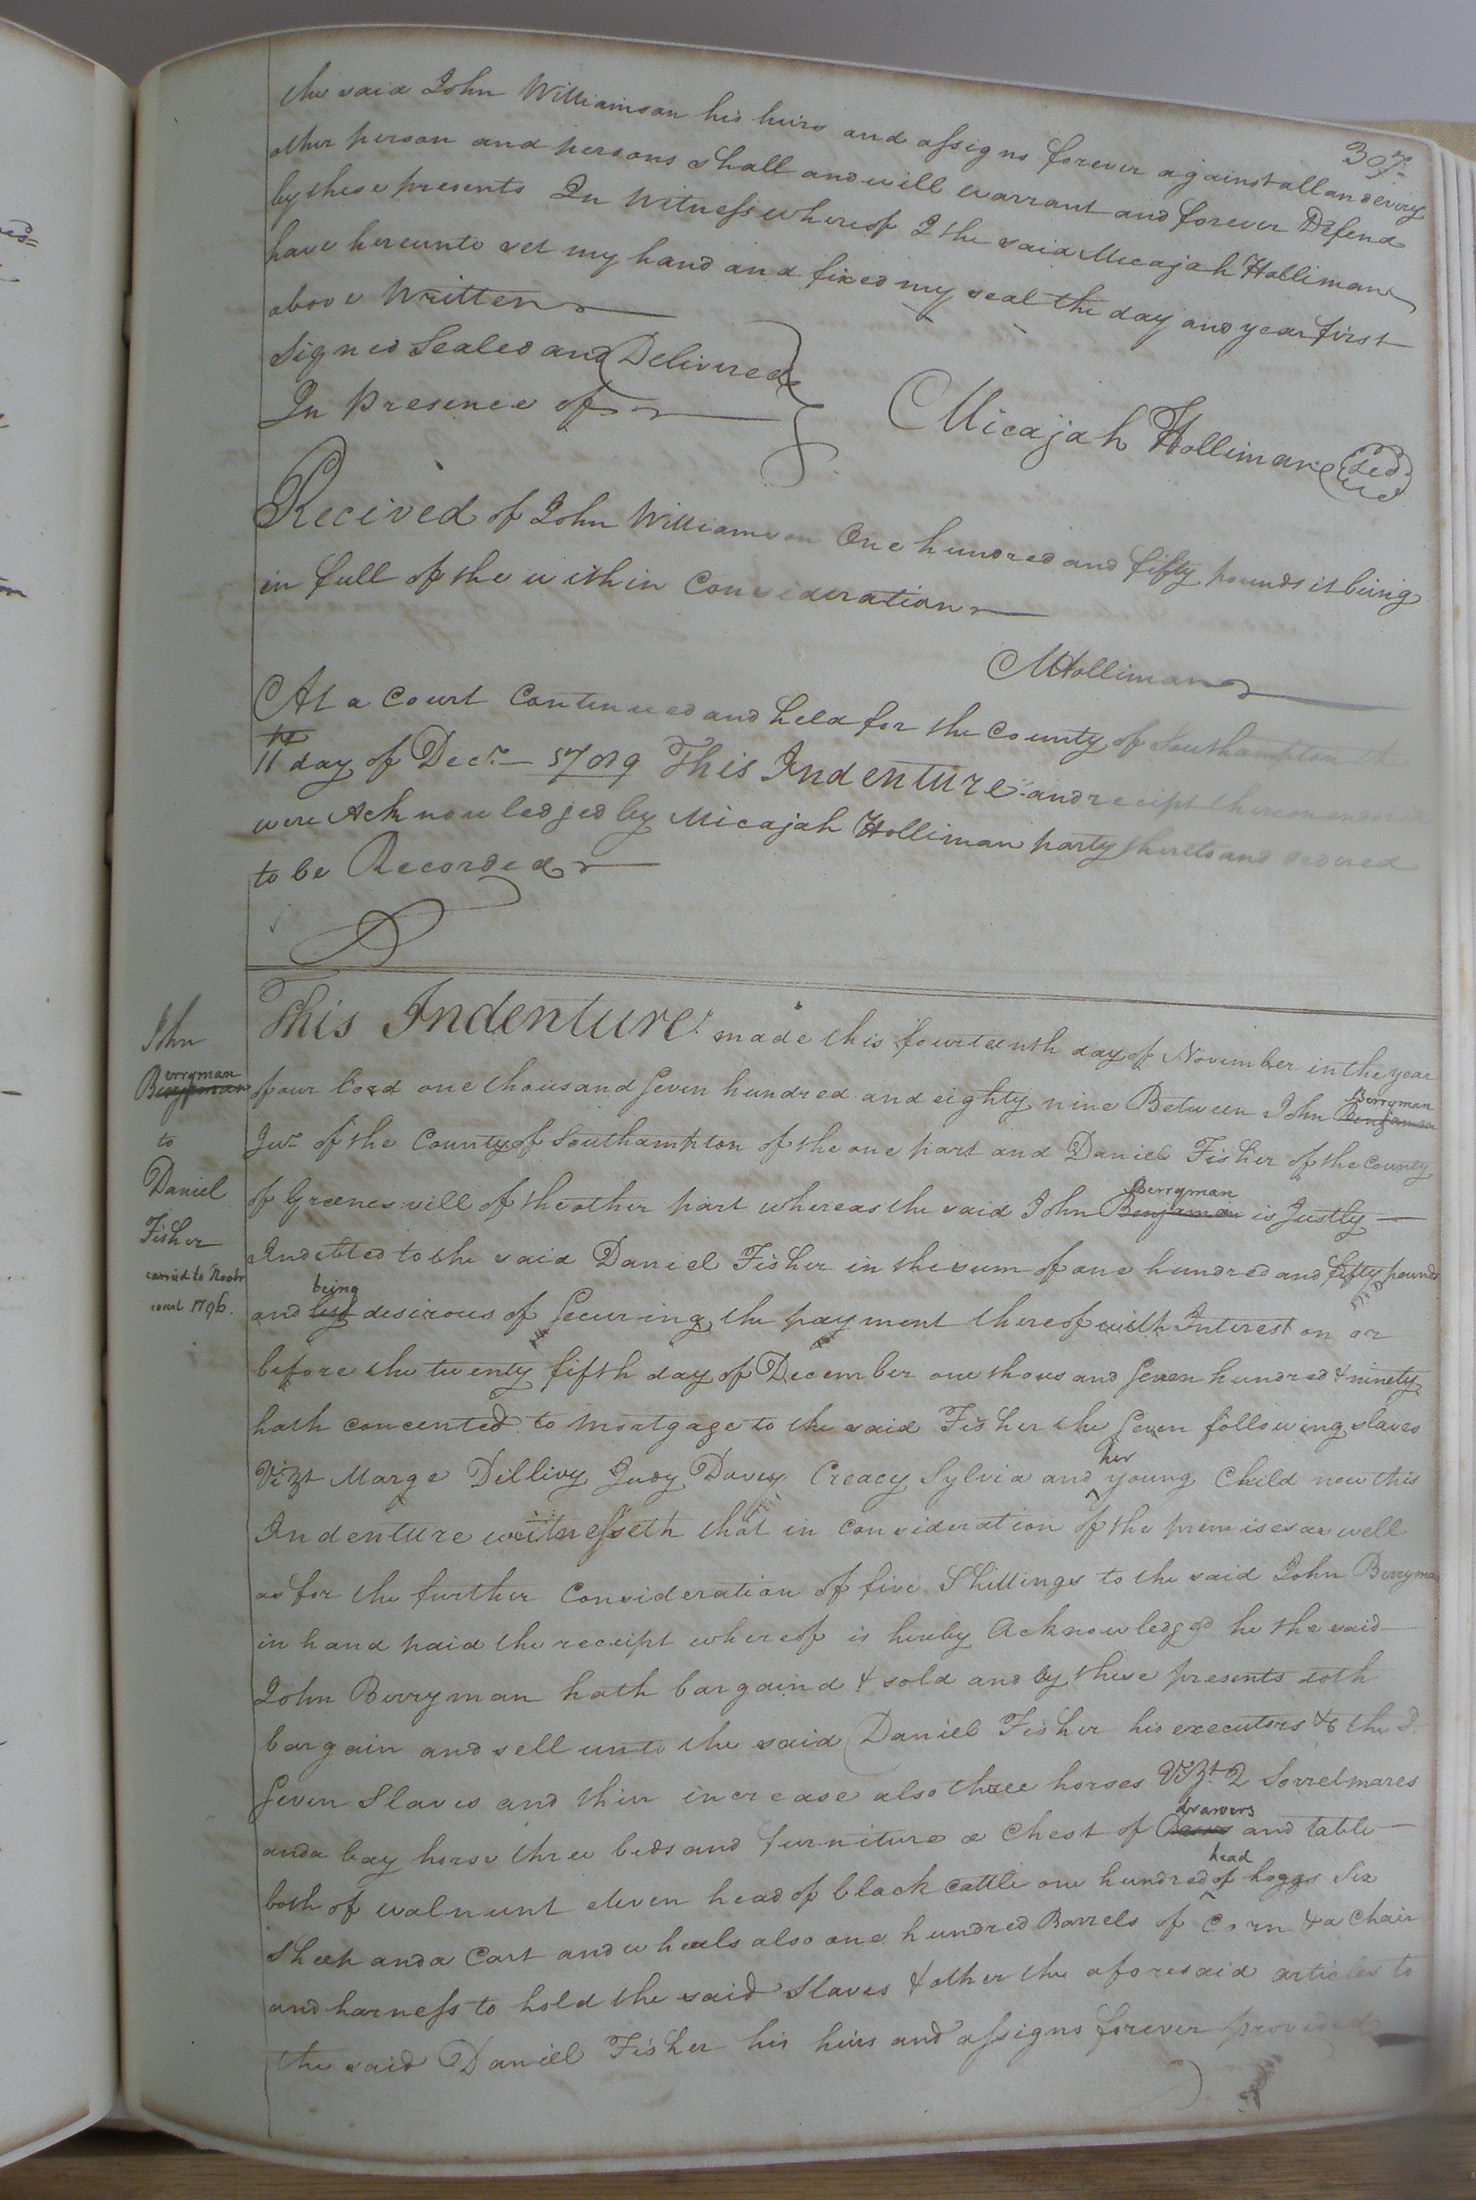 307.
the said John Williamson his heirs and assigns forever against all and every
other person and persons shall and will warrant and forever Defend
by these presents In Witness whereof I the said Micajah Holliman
have hereunto set my hand and fixed my seal the day and year first
above Written
Signed Sealed and Delivered
In Presence of
Micajah Holliman Sed
Recived of John Williamson One hundred and fifty pounds it being
in full of the within Consideration
MHolliman
At a Court Continued and held for the County of Southampton the
11th day of Decr. This Indenture and recipt thereon
were Acknowledged by Micajah Holliman party thereto and ordered
to be Recorded
John
Benjaman erryman
to
Daniel
Fisher
1796.
This Indenture made this fourteenth day of November in the year
of our lord one thousand seven hundred and eighty nine Between John Benjaman Berryman
Junr. of the County of Southampton of the one part and Daniel Fisher of the County
of Greenesvill of the other part whereas the said John Benjaman Berryman is Justly
Indebted to the said Daniel Fisher in the sum of one hundred and fifty pounds
and being desirous of securing the payment thereof with Interest on or
before the twenty fifth day of December one thousand seven hundred & ninety
hath concented to Mortgage to the said Fisher the seven following slaves
Vizt Marge Dillivy Judy Davey Creacy Sylvia and her young Child now this
Indenture witnesseth that in consideration of the premises as well
as for the further Consideration of five Shillings to the said John Berryman
in hand paid the receipt whereof is hereby Acknowledged he the said
John Berryman hath bargaind & sold and by these presents doth
bargain and sell unto the said Daniel Fisher his executors &c the sd.
seven Slaves and their increase also three horses Vizt. 2 Sorrel mares
and a bay horse three beds and furniture a Chest of drawers and table
both of walnunt eleven head of black cattle one hundred head of hoggs Six
Sheep and a Cart and wheals also one hundred Barrels of Corn & a Chair
and harness to hold the said Slaves & other the aforesaid articles to
the said Daniel Fisher his heirs and assigns forever provided